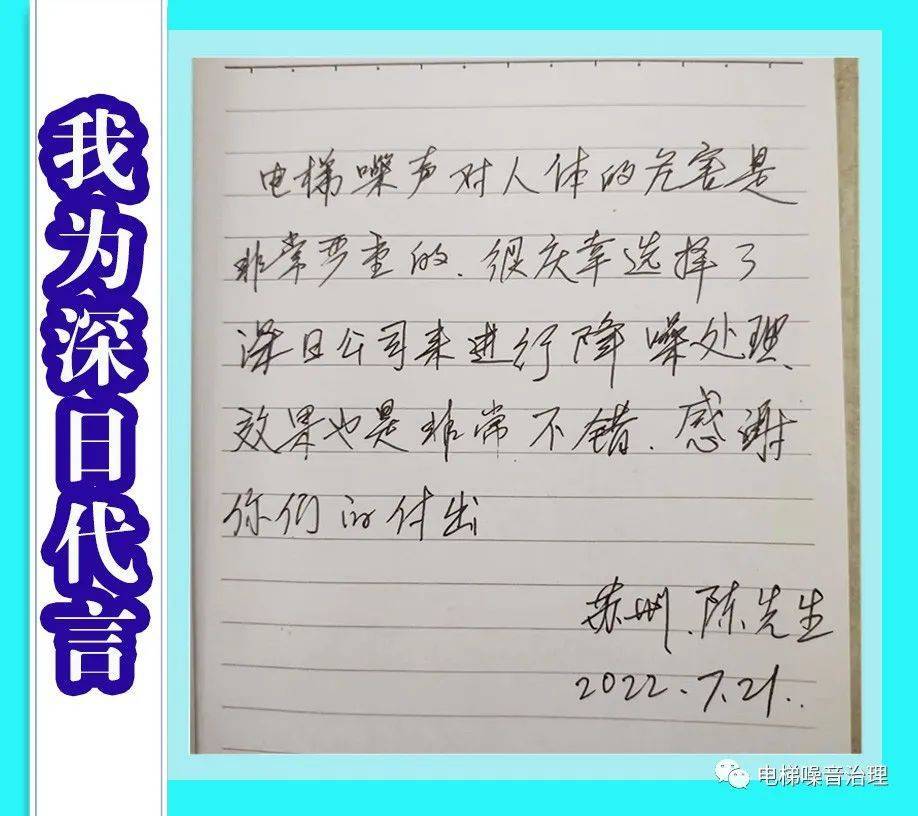 我为深日代言
电梯噪声对人体的危害是
非常严重的、很庆幸选择了
深日公司来进行降噪处理、
效果也是非常不错、感谢
你们的付出
苏州、陈先生
2022.7.21..
电梯噪音治理